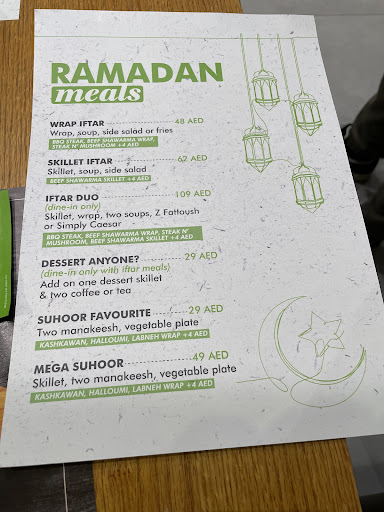 RAMADAN
meals
WRAP IFTAR 48 AED
Wrap, soup, side salad or fries
BBQ STEAK, BEEF SHAWARMA WRAP,
STEAK N' MUSHROOM +4 AED
SKILLET IFTAR 67 AED
Skillet, soup, side salad
BEEF SHAWARMA SKILLET +4 AED
IFTAR DUO 109 AED
(dine-in only)
Skillet, wrap, two soups, Z Fattoush
or Simply Caesar
BBQ STEAK, BEEF SHAWARMA WRAP, STEAK N'
MUSHROOM, BEEF SHAWARMA SKILLET +4 AED
DESSERT ANYONE? 29 AED
(dine-in only with iftar meals)
Add on one dessert skillet
& two coffee or tea
SUHOOR FAVOURITE 29 AED
Two manakeesh, vegetable plate
KASHKAWAN, HALLOUMI, LABNEH WRAP +4 AED
MEGA SUHOOR 49 AED
Skillet, two manakeesh, vegetable plate
KASHKAWAN, HALLOUMI, LABNEH WRAP +4 AED